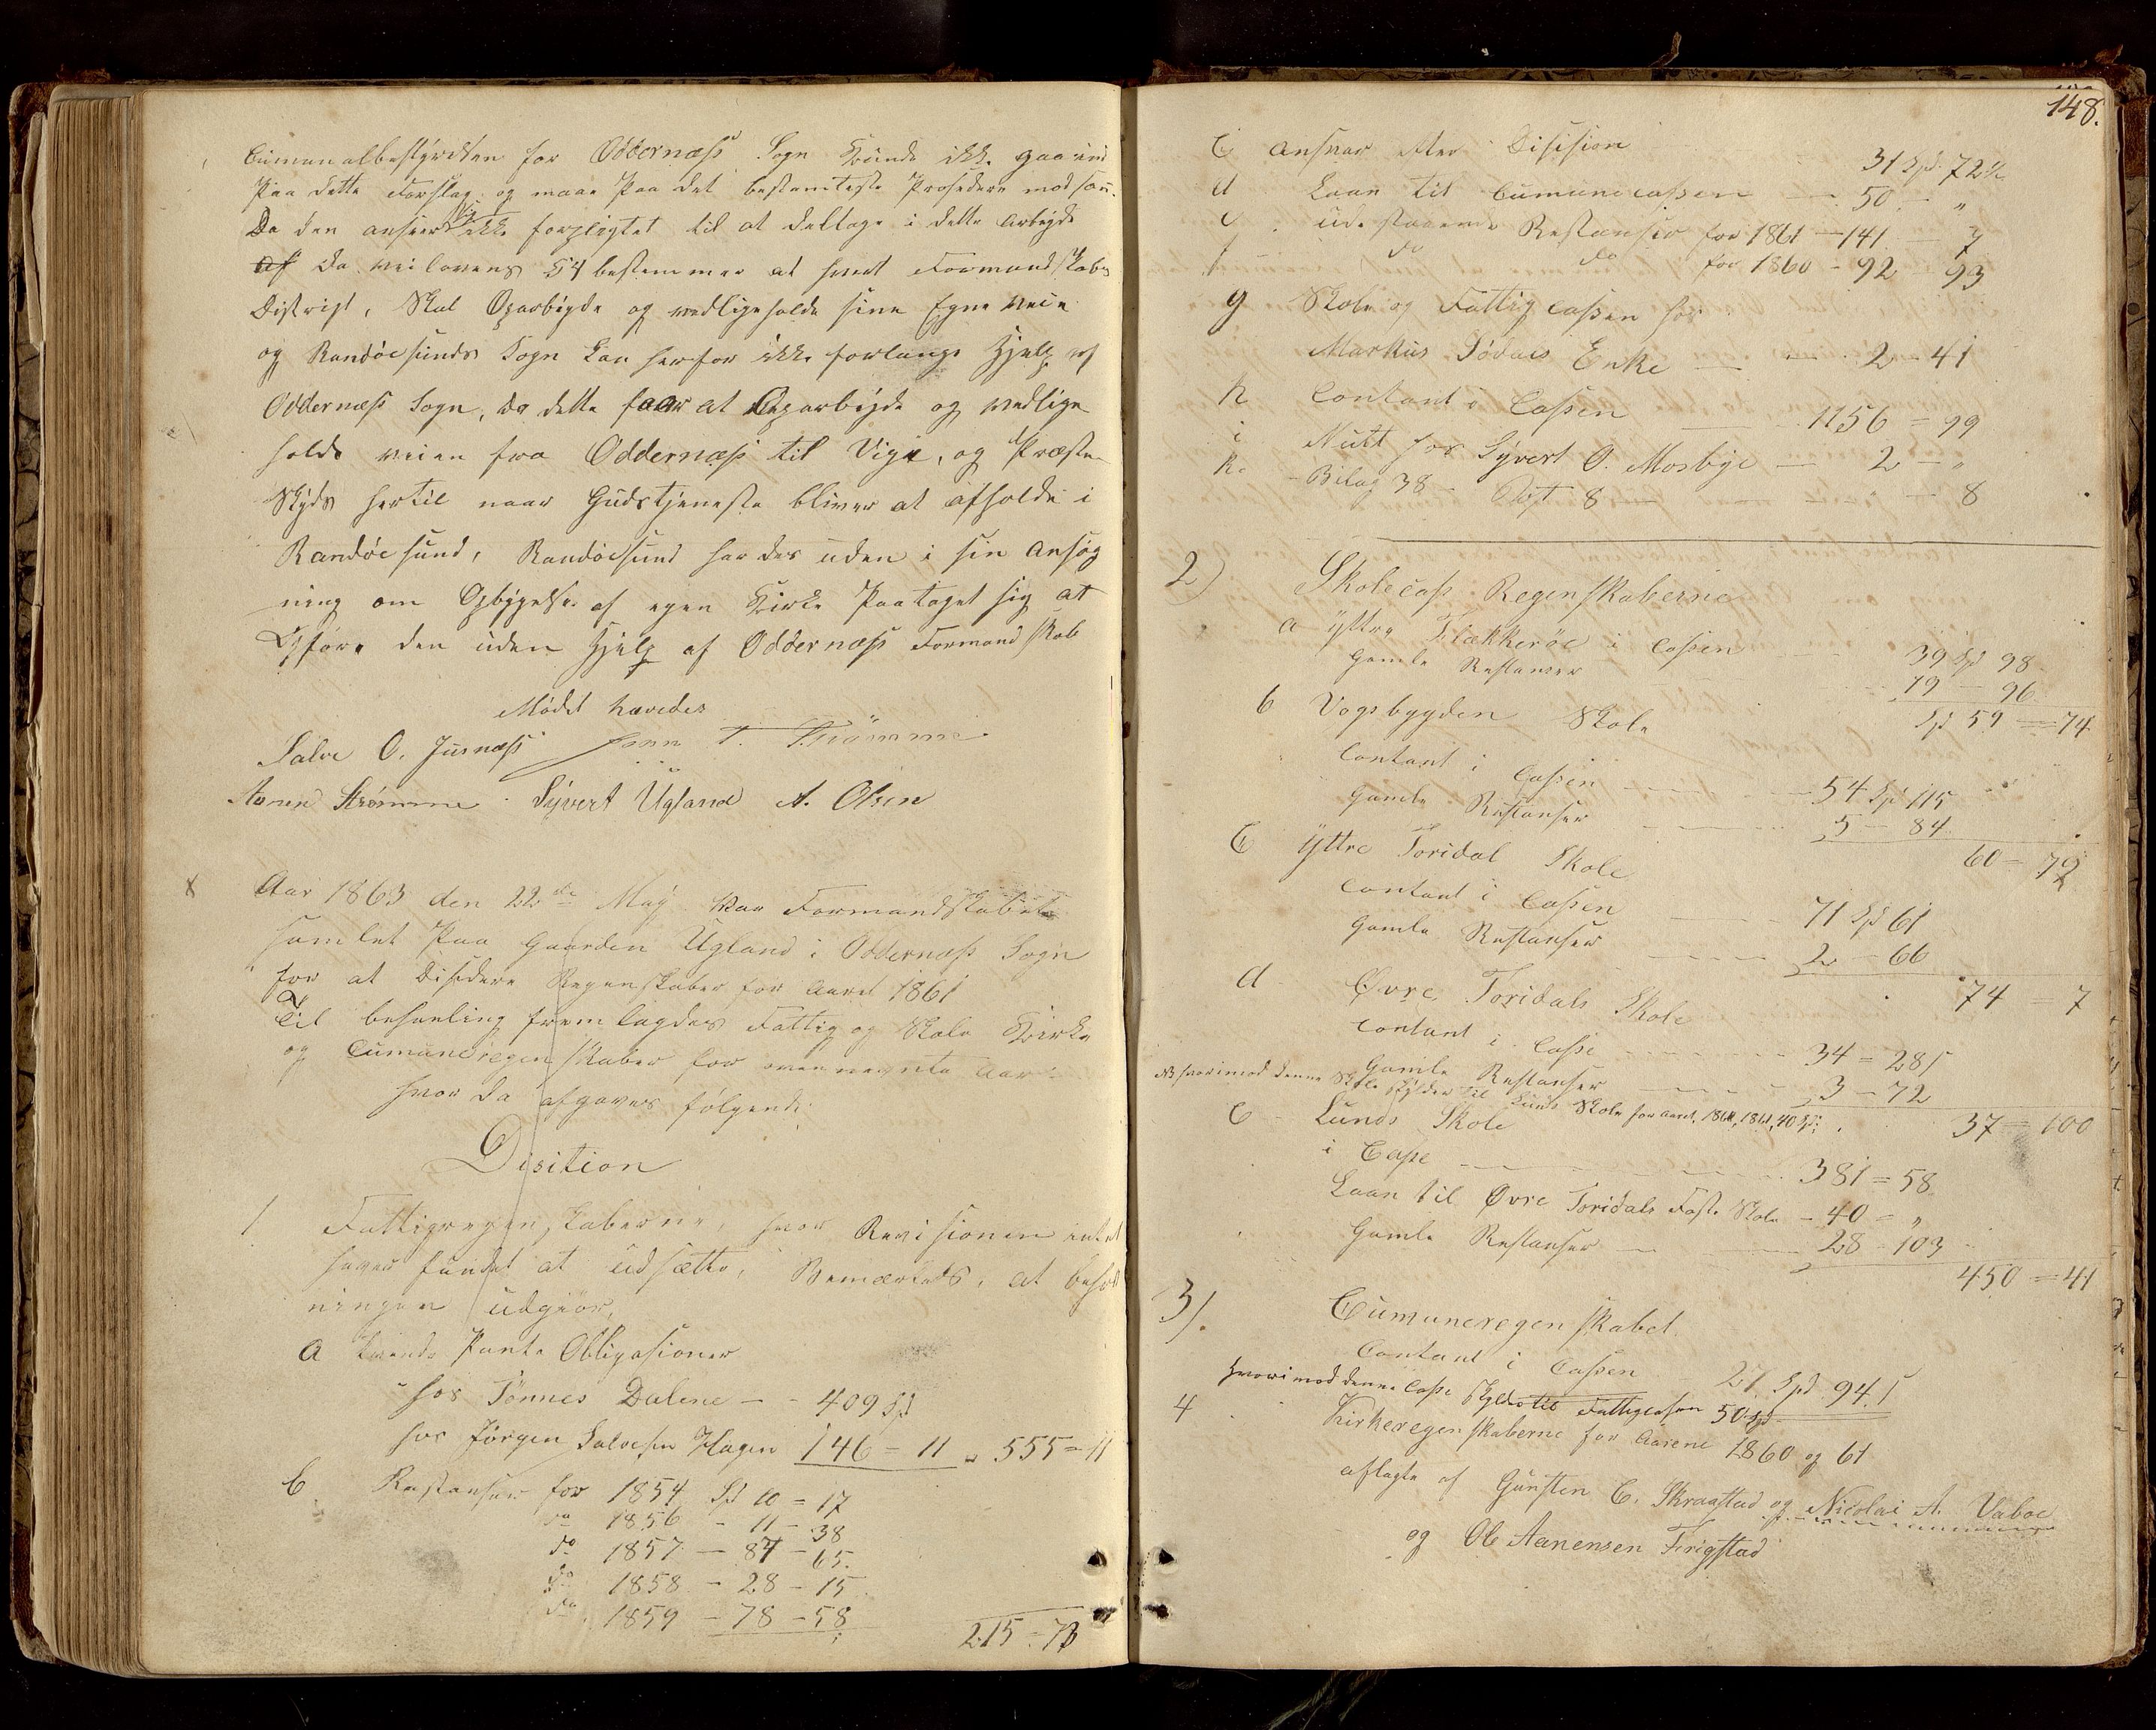 Cumunalbestÿrelsen for Oddernæss Sogn Kunde ikke gaa ind
Paa dette Forslag og maae Paa det bestemteste Prosedere mod saa.
Da den anseer sig ikke forpligtet til at deltage i dette Arbeyde
af da veilovens § 4 bestemmer at hvert Formandskabs
Distrigt, Skal Oparbeyde og vedligeholde sine Egne Veie
og Randøesunds Sogn kan herfor ikke forlange Hjelp af
Oddernæss Sogn, da dette faar at Oparbeyde og vedlige
holde veien fra Oddernæss til Vige, og Præste
Skyds hertil naar Gudstjeneste bliver at afholde i
Randøesund, Randøesund har des uden i sin Ansøg
ning om Opbygelse af egen Kirke Paataget sig at
Opføre den uden Hjelp af Oddernæss Formandskab
Mødet hævedes
Salve O. Jusnæss T. Strømme
Strømme Syvert Ugland A. Olsen
Aar 1863 den 22de Maÿ var Formandskabet
samlet Paa Gaarden Ugland i Oddernæss Sogn
for at Disidere Regenskaber for Aaret 1861
Til behanling fremlagdes Fattig og Skole Kirke
og Cumuneregenskaber for ovennevnte Aar
hvor da afgaves følgende
Disition
1 Fattigregenskaberne, hvor Revisionen intet
haver fundet at udsætte, Bemærkes, at behold
ningen udgiør,
a Pante Obligasioner
hos Tönnes Dalene - - 409 Spd
hos Jörgen Salvesen Hagen 146 = 11 " 555 = 11
b Restanser for 1854 Spd 10 = 17
do 1856 - 11 - 38
do 1857 - 87 - 65
do 1858 - 28 - 15
do 1859 - 78 - 58
215 - 73
148.
C Ansvar efter Disision 31 Spd 72½
d Laan til Cumunecassen 50 - "
e udestaaende Restanser for 1861 - 141 - 7
f do do for 1860 - 92 - 93
g Skole og Fattig Cassen hos
Markus Södals Enke 2 - 41
h Contant i Cassen 1156 = 99
i Nutt hos Sÿvert O. Mosbÿe - 2 - "
k. Bilag 38 - Post 8 - " - 8
2) Skolecass Regenskaberne
a ÿttre Flækkeröe i Cassen 39 Spd 98
Gamle Restanser 19 - 96
Spd 59 = 74
b Vogsbygden Skole
Contant i Cassen 54 Spd 115
Gamle Restanser 5 - 84
60 - 79
C ÿttre Toridal Skole
Contant i Cassen 71 Spd 61
Gamle Restanser 2 - 66
74 = 7
d Øvre Toridals Skole
Contant i Casse 34 = 28
Gamle Restanser 3 - 72
NB hvorimod denne Skole skylder til Lunds Skole for Aaret 1861, 40 Spd
37 = 100
e Lunds Skole
i Casse 381 = 58
Laan til Øvre Toridals Faste Skole - 40 = "
Gamle Restanser 28 - 103
450 = 41
3). Cumuneregenskabet
Contant i Cassen 27 Spd 94
hvorimod denne Casse skylder til Fattigcassen 50 Spd
4 Kirkeregenskaberne for Aarene 1860 og 61
aflagte af Gunsten C. Skraastad og Nicolai A. Vaboe
og Ole Aanensen Frigstad